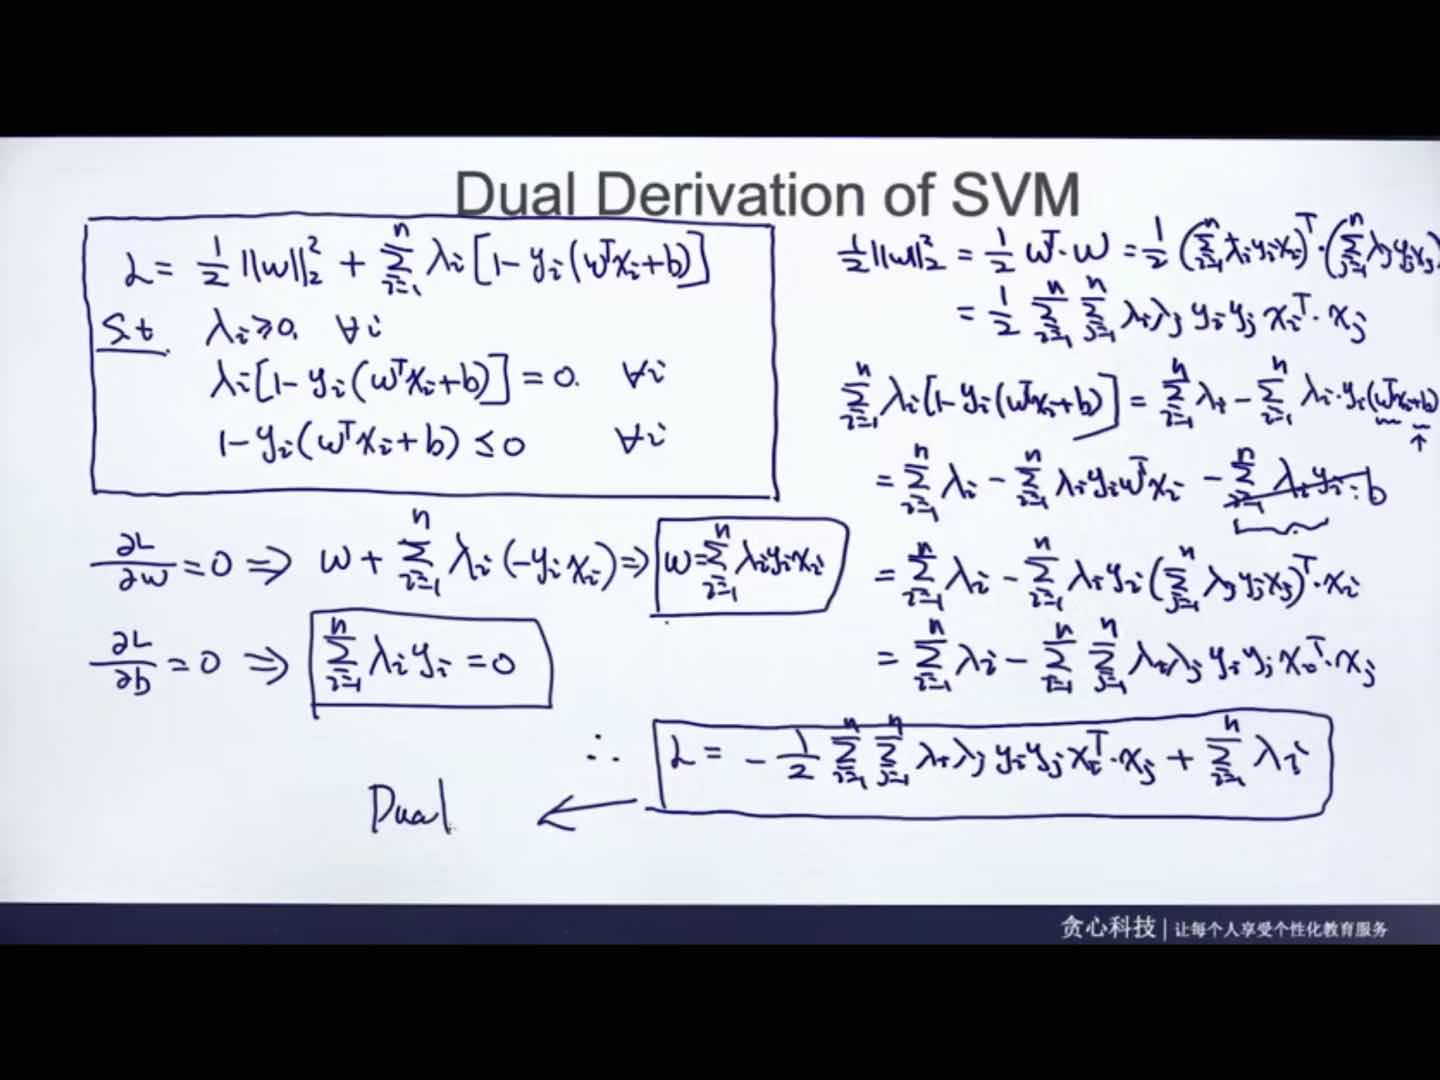 Dual Derivation of SVM
L = 1/2 ||w||₂² + Σⁿᵢ₌₁ λᵢ [1 - yᵢ(wᵀxᵢ + b)]
S.t λᵢ ≥ 0. ∀i
λᵢ[1 - yᵢ(wᵀxᵢ + b)] = 0. ∀i
1 - yᵢ(wᵀxᵢ + b) ≤ 0 ∀i
∂L/∂w = 0 ⇒ w + Σⁿᵢ₌₁ λᵢ(-yᵢxᵢ) ⇒ w = Σⁿᵢ₌₁ λᵢyᵢxᵢ
∂L/∂b = 0 ⇒ Σⁿᵢ₌₁ λᵢyᵢ = 0
1/2 ||w||₂² = 1/2 wᵀ·w = 1/2 (Σⁿᵢ₌₁ λᵢyᵢxᵢ)ᵀ·(Σⁿⱼ₌₁ λⱼyⱼxⱼ)
= 1/2 Σⁿᵢ₌₁ Σⁿⱼ₌₁ λᵢλⱼ yᵢyⱼ xᵢᵀ·xⱼ
Σⁿᵢ₌₁ λᵢ[1 - yᵢ(wᵀxᵢ + b)] = Σⁿᵢ₌₁ λᵢ - Σⁿᵢ₌₁ λᵢ·yᵢ(wᵀxᵢ + b)
= Σⁿᵢ₌₁ λᵢ - Σⁿᵢ₌₁ λᵢyᵢwᵀxᵢ - Σⁿᵢ₌₁ λᵢyᵢ·b
= Σⁿᵢ₌₁ λᵢ - Σⁿᵢ₌₁ λᵢyᵢ(Σⁿⱼ₌₁ λⱼyⱼxⱼ)ᵀ·xᵢ
= Σⁿᵢ₌₁ λᵢ - Σⁿᵢ₌₁ Σⁿⱼ₌₁ λᵢλⱼ yᵢyⱼ xᵢᵀ·xⱼ
∴ L = -1/2 Σⁿᵢ₌₁ Σⁿⱼ₌₁ λᵢλⱼ yᵢyⱼ xᵢᵀ·xⱼ + Σⁿᵢ₌₁ λᵢ
Dual ←
贪心科技 | 让每个人享受个性化教育服务